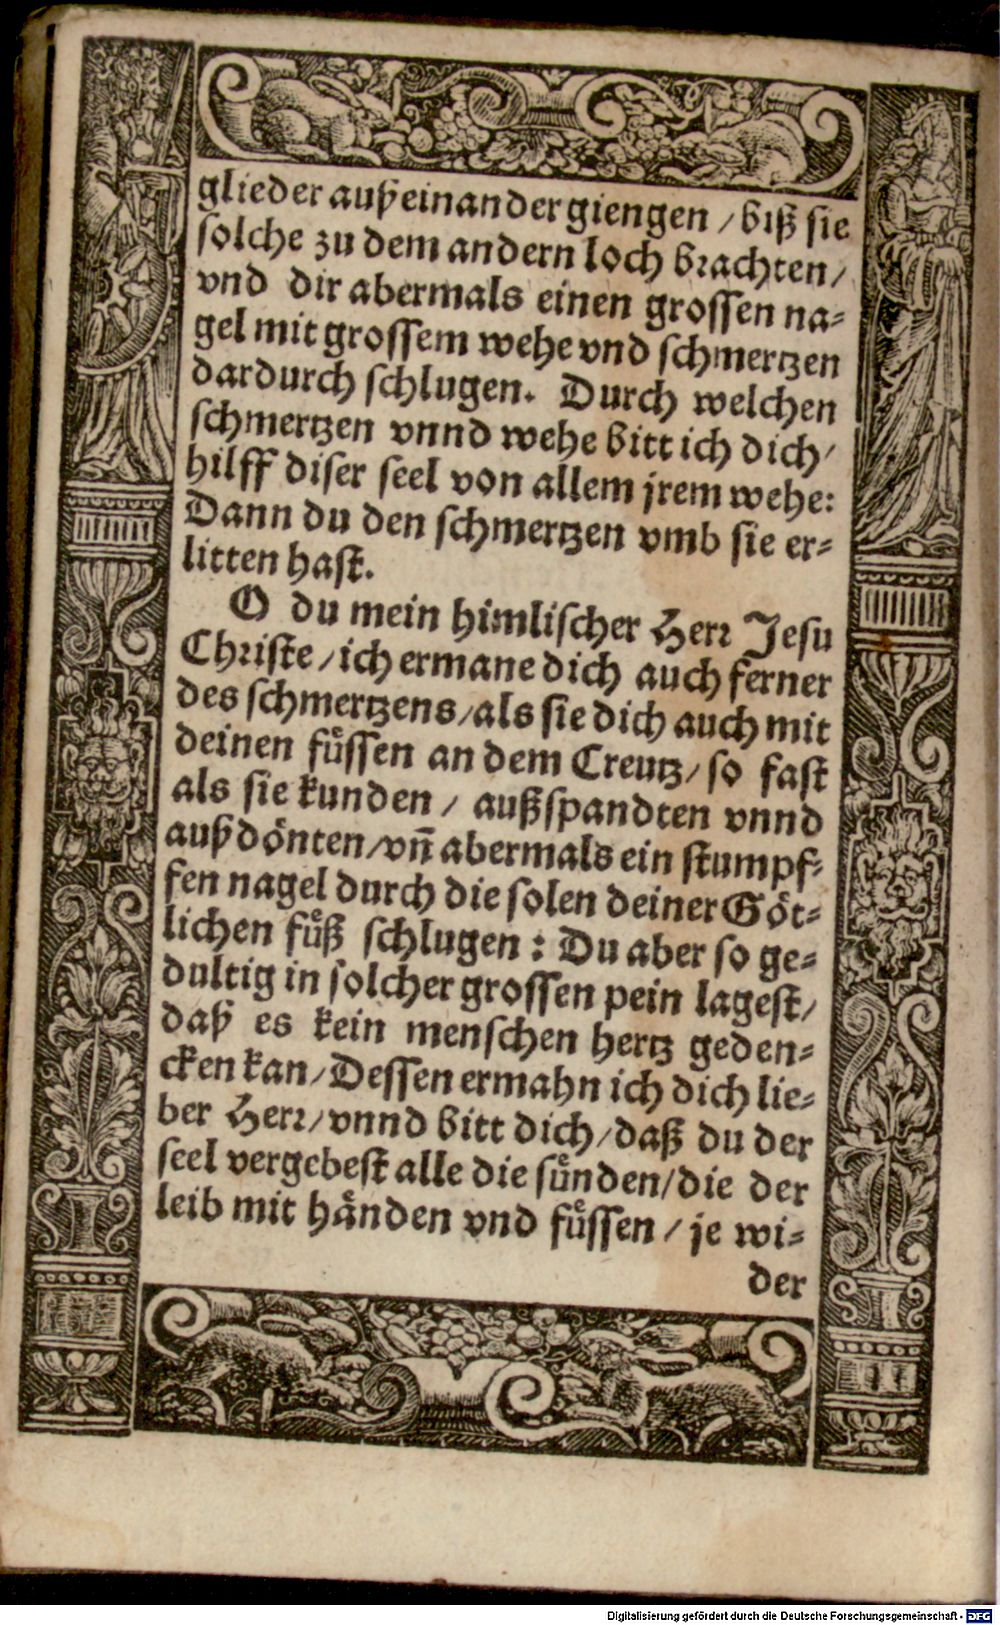 glieder außeinander giengen / biß sie
solche zu dem andern loch brachten /
vnd dir abermals einen grossen na=
gel mit grossem wehe vnd schmertzen
dardurch schlugen. Durch welchen
schmertzen vnnd wehe bitt ich dich /
hilff diser seel von allem jrem wehe:
Dann du den schmertzen vmb sie er=
litten hast.
O du mein himlischer Herr Jesu
Christe / ich ermane dich auch ferner
des schmertzens / als sie dich auch mit
deinen fuͤssen an dem Creutz / so fast
als sie kunden / außspandten vnnd
außdoͤnten / vn̄ abermals ein stumpf=
fen nagel durch die solen deiner Goͤt=
lichen fuͤß schlugen : Du aber so ge=
dultig in solcher grossen pein lagest /
daß es kein menschen hertz geden=
cken kan / Dessen ermahn ich dich lie=
ber Herr / vnnd bitt dich / daß du der
seel vergebest alle die suͤnden / die der
leib mit haͤnden vnd fuͤssen / je wi=
der
Digitalisierung gefördert durch die Deutsche Forschungsgemeinschaft - DFG